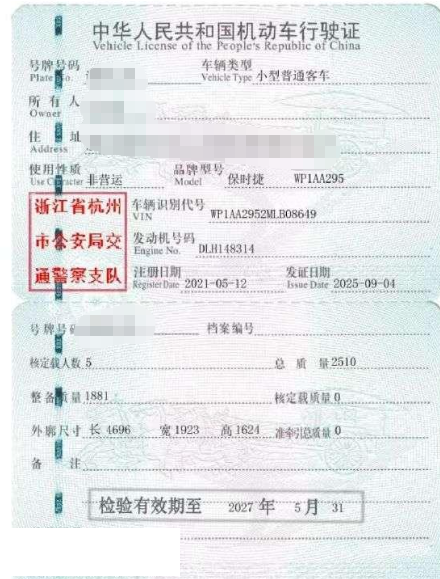 中华人民共和国机动车行驶证
Vehicle License of the People's Republic of China
号牌号码
Plate No.
车辆类型
Vehicle Type 小型普通客车
所有人
Owner
住址
Address
使用性质
Use Character 非营运
品牌型号
Model 保时捷 WP1AA295
浙江省杭州
市公安局交
通警察支队
车辆识别代号
VIN WP1AA2952MLB08649
发动机号码
Engine No. DLH148314
注册日期
Register Date 2021-05-12
发证日期
Issue Date 2025-09-04
号牌号码 档案编号
核定载人数 5 总质量 2510
整备质量 1881 核定载质量 0
外廓尺寸 长 4696 宽 1923 高 1624 准牵引总质量 0
备注
检验有效期至 2027 年 5 月 31